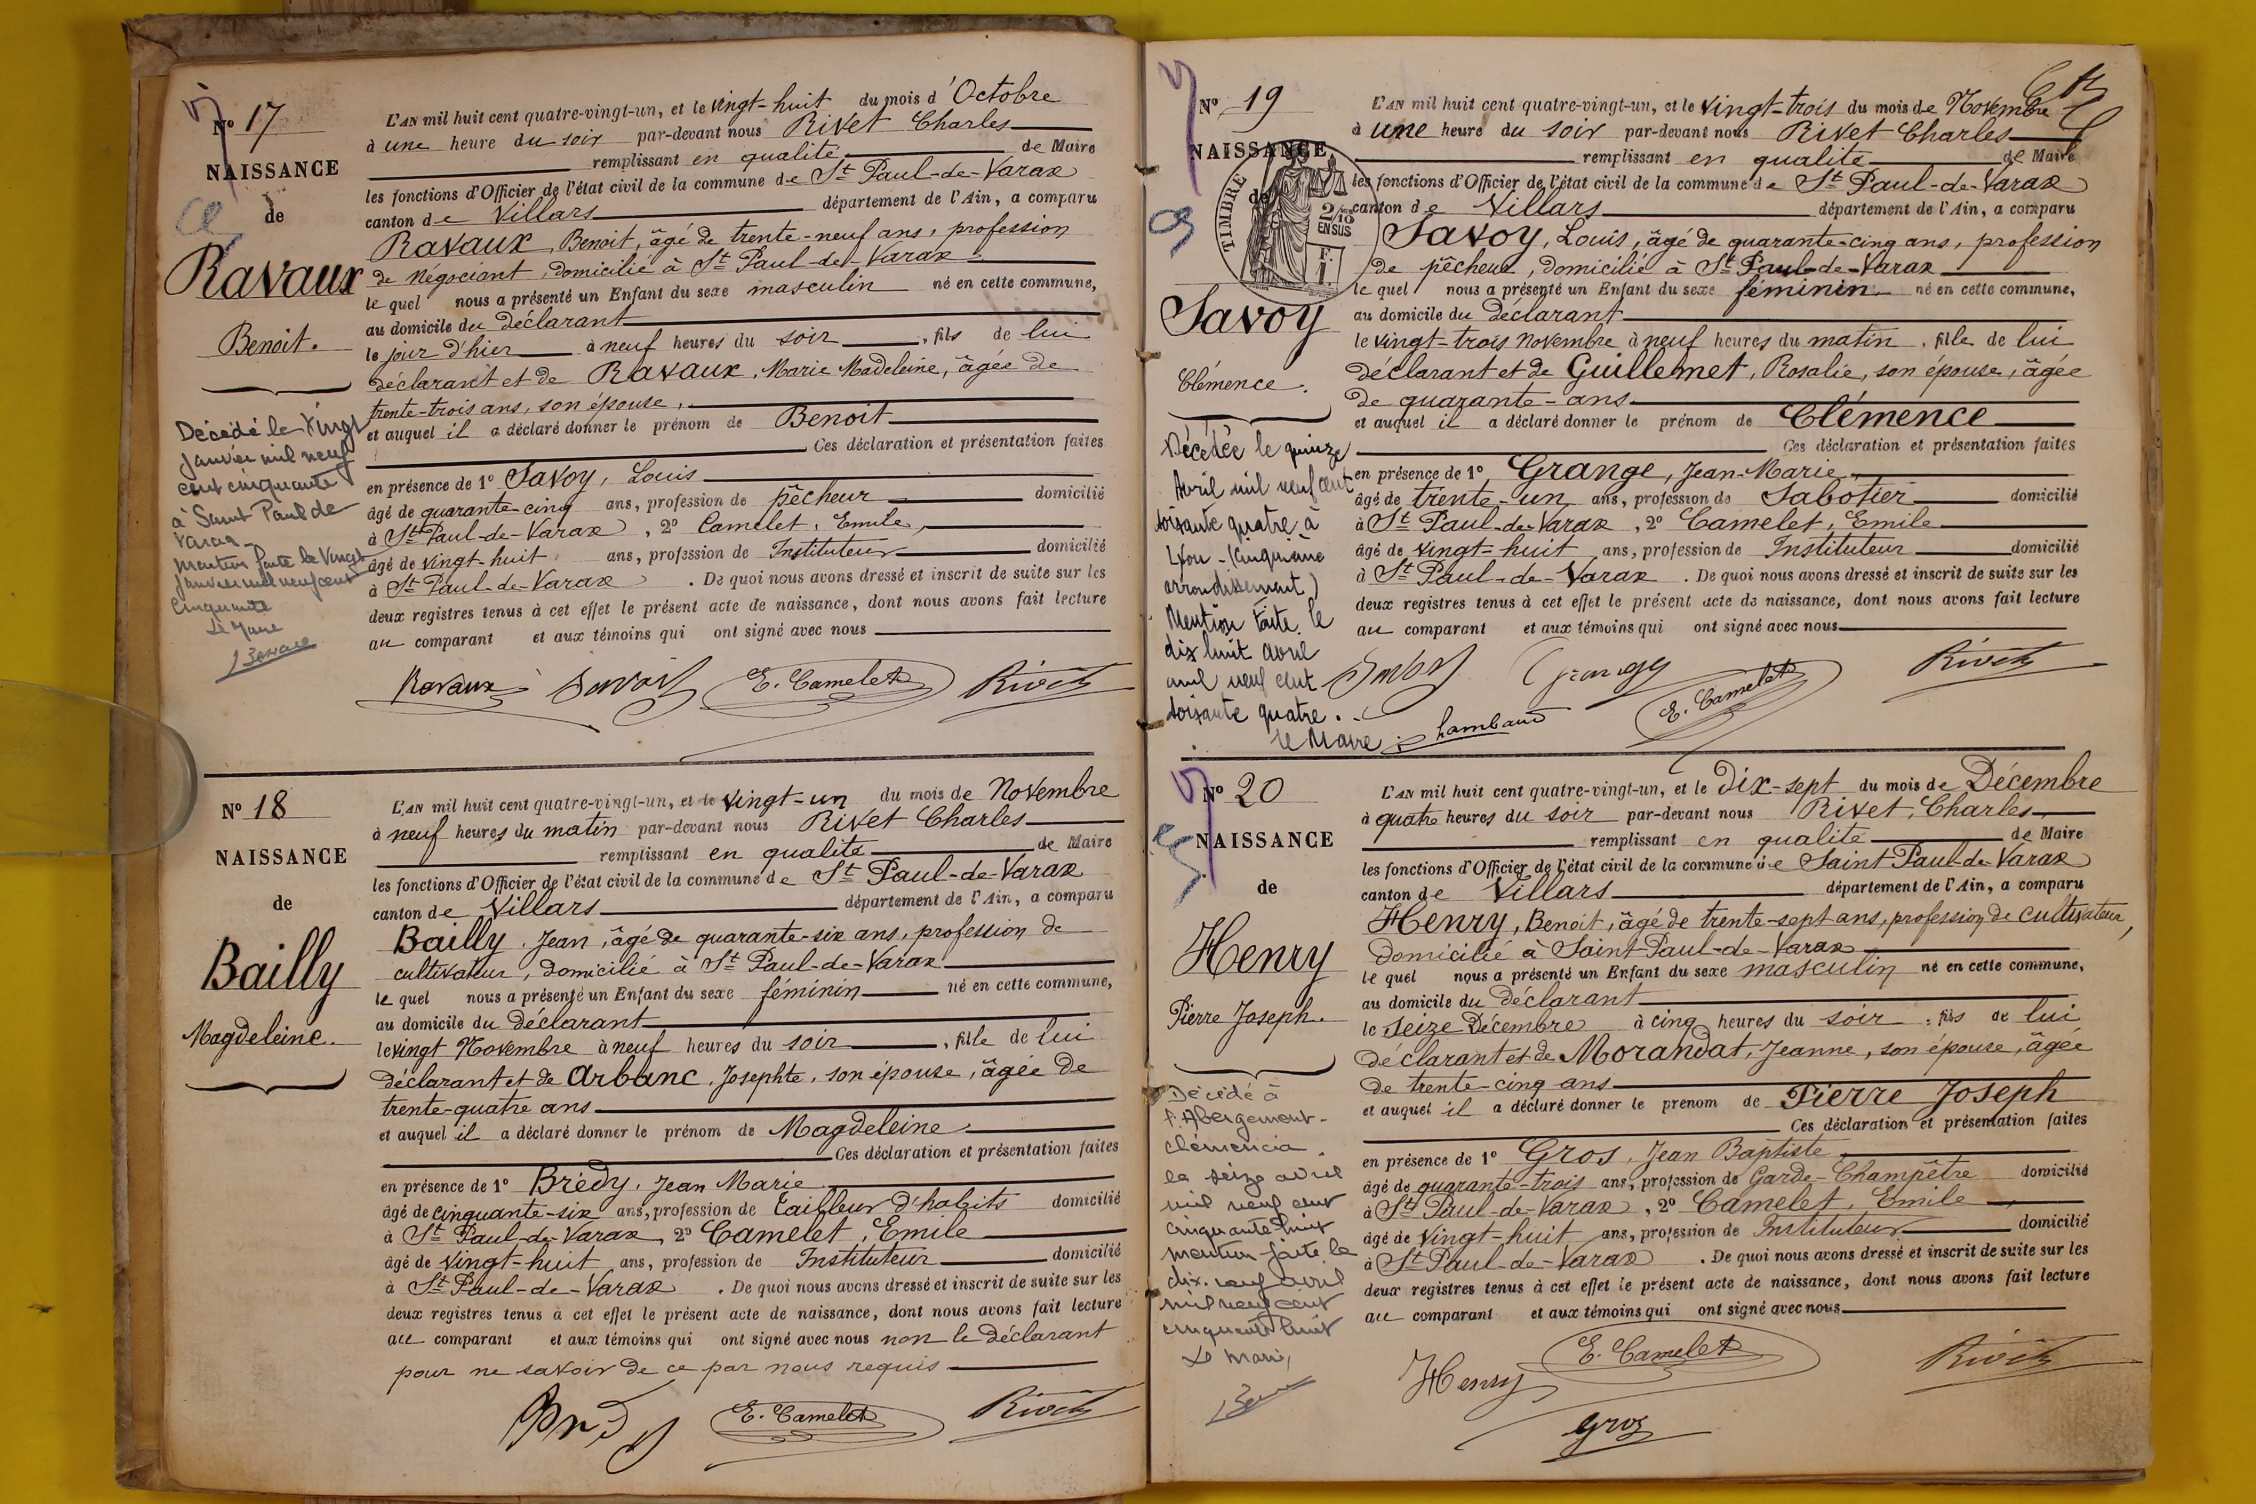 Nº 17
NAISSANCE
de
Ravaux
Benoit.
Décédé le Vingt
janvier mil neuf
cent cinquante
à Saint Paul de
Varax
mention faite le Vingt
janvier mil neuf cent
cinquante
Le Maire
L'AN mil huit cent quatre-vingt-un, et le vingt-huit du mois d'Octobre
à une heure du soir par-devant nous Rivet Charles
remplissant en qualité de Maire
les fonctions d'Officier de l'état civil de la commune de St Paul-de-Varax
canton de Villars département de l'Ain, a comparu
Ravaux, Benoit, âgé de trente-neuf ans, profession
de Négociant, domicilié à St Paul-de-Varax
le quel nous a présenté un Enfant du sexe masculin né en cette commune,
au domicile du déclarant
le jour d'hier à neuf heures du soir, fils de lui
déclarant et de Ravaux, Marie Madeleine, âgée de
trente-trois ans, son épouse,
et auquel il a déclaré donner le prénom de Benoit
Ces déclaration et présentation faites
en présence de 1º Savoy, Louis
âgé de quarante-cinq ans, profession de pêcheur domicilié
à St Paul-de-Varax, 2º Camelet, Emile,
âgé de vingt-huit ans, profession de Instituteur domicilié
à St Paul-de-Varax. De quoi nous avons dressé et inscrit de suite sur les
deux registres tenus à cet effet le présent acte de naissance, dont nous avons fait lecture
au comparant et aux témoins qui ont signé avec nous
Ravaux Savoy E. Camelet Rivet
Nº 18
NAISSANCE
de
Bailly
Magdeleine.
L'AN mil huit cent quatre-vingt-un, et le vingt-un du mois de Novembre
à neuf heures du matin par-devant nous Rivet Charles
remplissant en qualité de Maire
les fonctions d'Officier de l'état civil de la commune de St Paul-de-Varax
canton de Villars département de l'Ain, a comparu
Bailly, Jean, âgé de quarante-six ans, profession de
cultivateur, domicilié à St Paul-de-Varax
le quel nous a présenté un Enfant du sexe féminin né en cette commune,
au domicile du déclarant
le vingt Novembre à neuf heures du soir, fille de lui
déclarant et de Arbanc, Josephte, son épouse, âgée de
trente-quatre ans
et auquel il a déclaré donner le prénom de Magdeleine.
Ces déclaration et présentation faites
en présence de 1º Brédy, Jean Marie
âgé de cinquante-six ans, profession de Tailleur d'habits domicilié
à St Paul-de-Varax, 2º Camelet, Emile
âgé de vingt-huit ans, profession de Instituteur domicilié
à St Paul-de-Varax. De quoi nous avons dressé et inscrit de suite sur les
deux registres tenus à cet effet le présent acte de naissance, dont nous avons fait lecture
au comparant et aux témoins qui ont signé avec nous non le déclarant
pour ne savoir de ce par nous requis
Brédy E. Camelet Rivet
Nº 19
NAISSANCE
de
TIMBRE
2/10
EN SUS
F.
1.
Savoy
Clémence.
Décédée le quinze
Avril mil neuf cent
soixante quatre à
Lyon - (cinquième
arrondissement)
Mention faite le
dix huit avril
mil neuf cent
soixante quatre.
Le Maire : Chambaud
L'AN mil huit cent quatre-vingt-un, et le vingt-trois du mois de Novembre
à une heure du soir par-devant nous Rivet Charles
remplissant en qualité de Maire
les fonctions d'Officier de l'état civil de la commune de St Paul-de-Varax
canton de Villars département de l'Ain, a comparu
Savoy, Louis, âgé de quarante-cinq ans, profession
de pêcheur, domicilié à St Paul-de-Varax
le quel nous a présenté un Enfant du sexe féminin né en cette commune,
au domicile du déclarant
le vingt-trois Novembre à neuf heures du matin, fille de lui
déclarant et de Guillemet, Rosalie, son épouse, âgée
de quarante-ans
et auquel il a déclaré donner le prénom de Clémence
Ces déclaration et présentation faites
en présence de 1º Grange, Jean-Marie,
âgé de trente-un ans, profession de Sabotier domicilié
à St Paul-de-Varax, 2º Camelet, Emile
âgé de vingt-huit ans, profession de Instituteur domicilié
à St Paul-de-Varax. De quoi nous avons dressé et inscrit de suite sur les
deux registres tenus à cet effet le présent acte de naissance, dont nous avons fait lecture
au comparant et aux témoins qui ont signé avec nous
Savoy Grange E. Camelet Rivet
Nº 20
NAISSANCE
de
Henry
Pierre Joseph.
Décédé à
l'Abergement-
Clémencia
le seize avril
mil neuf cent
cinquante huit
mention faite le
dix-neuf avril
mil neuf cent
cinquante huit
Le Maire,
L'AN mil huit cent quatre-vingt-un, et le Dix-sept du mois de Décembre
à quatre heures du soir par-devant nous Rivet, Charles
remplissant en qualité de Maire
les fonctions d'Officier de l'état civil de la commune de Saint-Paul-de-Varax
canton de Villars département de l'Ain, a comparu
Henry, Benoit, âgé de trente-sept ans, profession de cultivateur,
domicilié à Saint-Paul-de-Varax
le quel nous a présenté un Enfant du sexe masculin né en cette commune,
au domicile du déclarant
le seize Décembre à cinq heures du soir, fils de lui
déclarant et de Morandat, Jeanne, son épouse, âgée
de trente-cinq ans
et auquel il a déclaré donner le prénom de Pierre Joseph
Ces déclaration et présentation faites
en présence de 1º Gros, Jean Baptiste
âgé de quarante-trois ans, profession de Garde-Champêtre domicilié
à St Paul-de-Varax, 2º Camelet, Emile
âgé de vingt-huit ans, profession de Instituteur domicilié
à St Paul-de-Varax. De quoi nous avons dressé et inscrit de suite sur les
deux registres tenus à cet effet le présent acte de naissance, dont nous avons fait lecture
au comparant et aux témoins qui ont signé avec nous
Henry E. Camelet Rivet
Gros